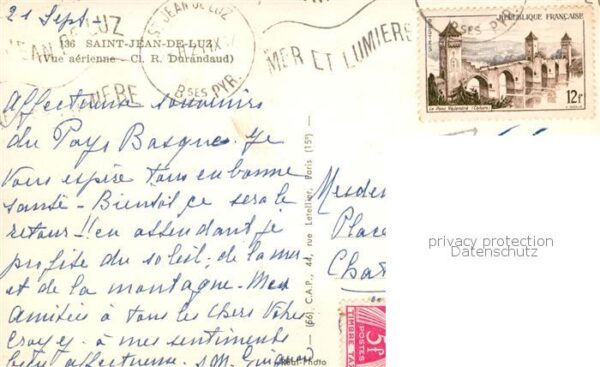 21 Sept -
136 SAINT-JEAN-DE-LUZ
(Vue aérienne - Cl. R. Durandaud)
ST JEAN DE LUZ
BSES PYR.
MER ET LUMIERE
JEAN DE LUZ
BSES PYR.
RÉPUBLIQUE FRANÇAISE
Le Pont Valentré (Cahors)
12f
Affectueux souvenirs
du Pays Basque. Je
vous espère tous en bonne
santé - Bientôt ce sera le
retour !! en attendant je
profite du soleil, de la mer
et de la montagne - Mes
Amitiés à tous les chers vôtres
croyez - à mes sentiments
bien affectueux.
(66) C.A.P., 44, rue Letellier, Paris (15e)
Réal-Photo
Mesde
Place
Cha
privacy protection
Datenschutz
5f
POSTES
TIMBRE TA